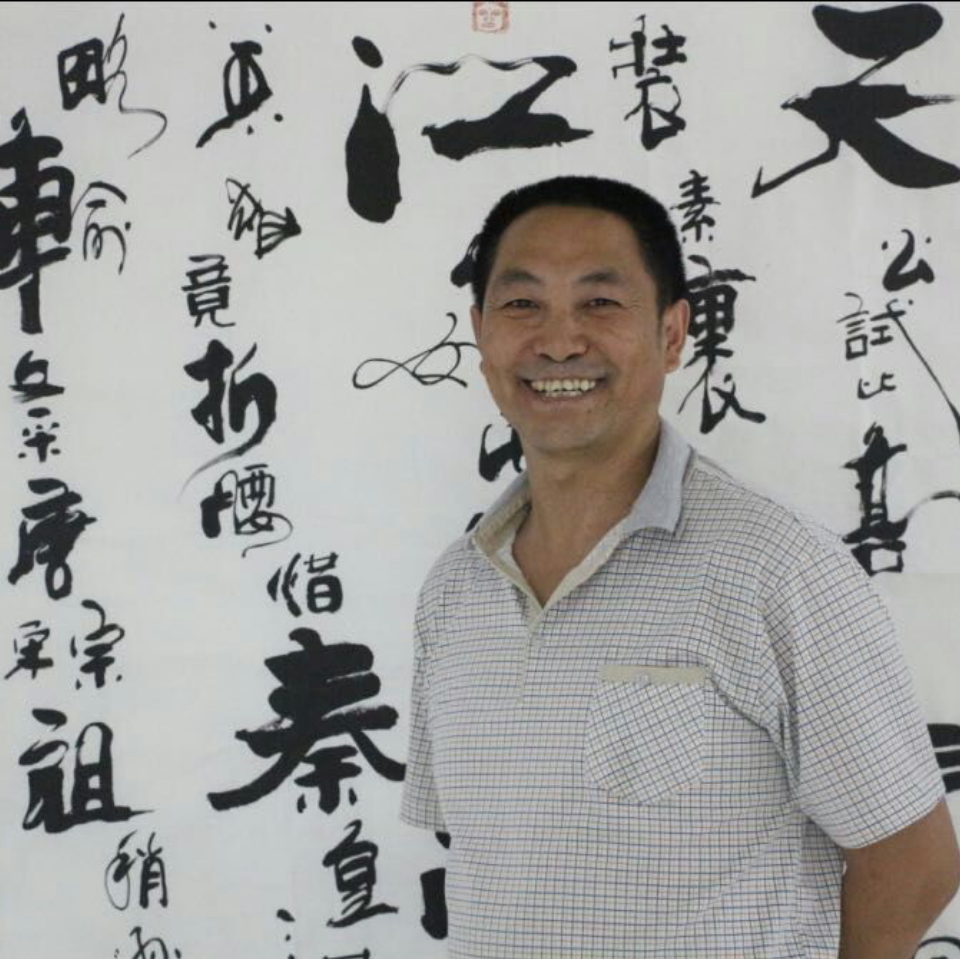 天公試比高
裝素裹
江
英雄竟折腰
惜秦皇
略輸文采唐宗宋祖稍